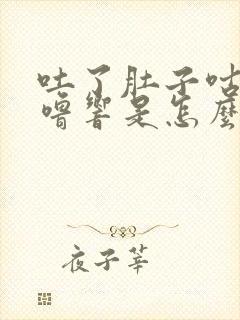 吐了肚子咕
噜響是怎麼
夜子莘